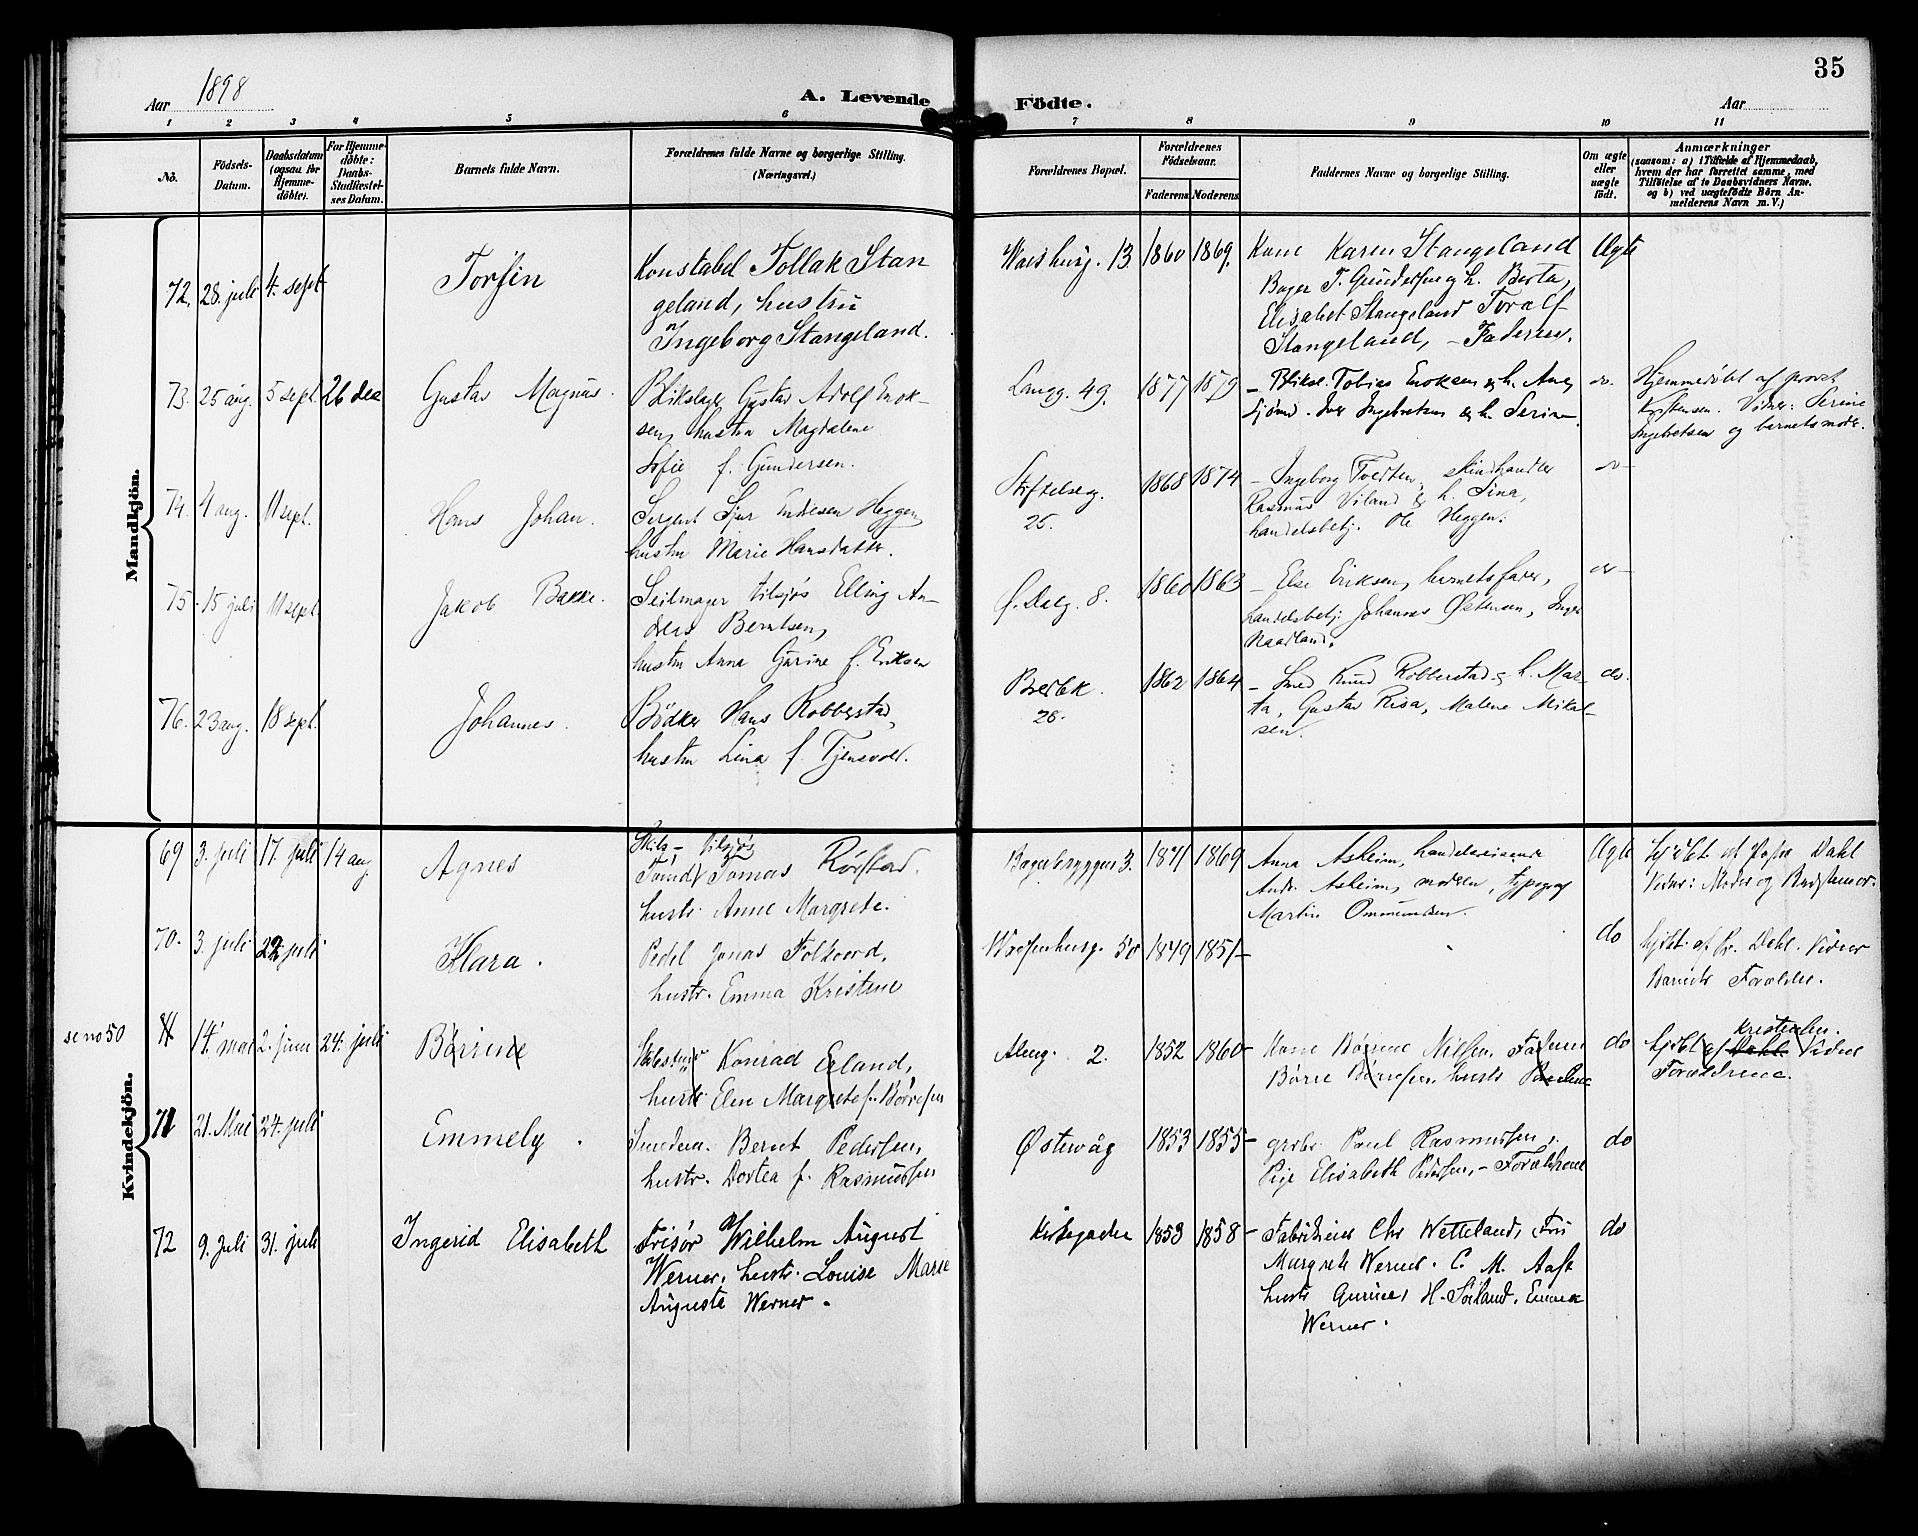 35
Aar 1898
A. Levende Födte.
Aar
1 2 3 4 5 6 7 8 9 10 11
No.
Födsels-Datum.
Daabsdatum (ogsaa for Hjemme-döbte).
For Hjemme-döbte: Daabs-Stadfæstel-ses Datum.
Barnets fulde Navn.
Forældrenes fulde Navne og borgerlige Stilling.
(Næringsvei.)
Forældrenes Bopæl.
Forældrenes Födselsaar.
Faderens. Moderens.
Faddernes Navne og borgerlige Stilling.
Om ægte eller uægte født.
Anmærkninger
(saasom: a) i Tilfælde af Hjemmedaab,
hvem der har forrettet samme, med
Tilföielse af to Daabsvidners Navne.
og b) ved uægtefödte Börn An-
melderens Navn m. V.)
Mandkjön.
72. 28. juli 4. sept Torfin
Konstabel Tollak Stan
geland, hustru
Ingeborg Stangeland.
13. 1860 1869.
Kone Karen Stangeland
Bager T. Gundersen og h. Berta,
Elisabet Stangeland Toralf
Stangeland, - Faderen.
Ægte
73. 25 aug. 5 sept. 26 dec Gustav Magnus.
Blikslager Gustav Adolf Enok-
sen, hustru Magdalene
Sofie f. Gundersen.
Langg. 49. 1877 1879
- Bliksl. Tobias Enoksen & h. Ane,
Sjømd. Iver Ingebretsen & h. Serine
do.
Hjemmedøbt af provst
Kristensen. Vidner: Serine
Ingebretsen og barnets moder.
74. 4 aug. 11 sept. Hans Johan.
Sergent Sjur Endresen Heggen,
hustru Marie Hansdatter.
Stiftelseg.
25.
1868 1874
- Ingeborg Tvedten, skindhandler
Rasmus Viland & h. Sina,
handelsbetj. Ole Heggen.
do
75. 15 juli 11 sept. Jakob Bakke.
Seilmager tilsjøs Elling An-
ders Berntsen,
hustru Anna Gurine f. Eriksen
Ø. Dalg. 8. 1860 1863
- Else Eriksen, barnets fader,
handelsbetj. Johannes Østensen, Inger
Naadland.
do
76. 23 aug. 18 sept. Johannes.
Bödker Hans Robberstad,
hustru Lina f. Tjensvold.
Bredbk.
28.
1862 1864
- Smed Knud Robberstad & h. Mar-
ta, Gustav Risa, Malene Mikal-
sen.
do.
Kvindekjön.
69 3. juli 17. juli 14 aug Agnes
tilsjøs
Tomas Rørstad.
hustr. Anne Margrete.
Bagerbryggen 3. 1871 1869
Anna Asheim, handelsreisende
Andr. Asheim, moderen, typograf
Martin Ommundsen.
Ægte
Hjdbt af Past. Dahl
Vidner: Moder og
70. 3. juli 22 juli Klara.
Pedel Jonas Folkvord,
hustr. Emma Kristine
Waisenhusg. 50 1849 1851
do
Hjdbt. af Pr. Dahl. Vidner
Barnets Forældre.
se no 50
14. mai 2. juni 24. juli Børine
Konrad Erland,
hustr Elen Margrete f. Børresen
2. 1852 1860
Kone Børine Nilsen, Faderen
Børre Børresen, hustr Pauline
do
Kristensen.
Hjdbt af Dahl. Vidner
Forældrene.
71 21. Mai 24. juli Emmely.
Bernt Pedersen,
hustr. Dortea f. Rasmussen
Østervåg 1853 1855
Paul Rasmussen,
Pige Elisabeth Pedersen, - Forældrene
do
72 9. juli 31. juli Ingerid Elisabeth
Frisør Wilhelm August
Werner, hustr. Louise Marie
Auguste Werner.
Kirkegaden 1853 1858
- Fabrikeier Chr Wetteland, Fru
Margrete Werner. C. M.
hustr Gurine, H. Söiland, Emma
Werner.
do